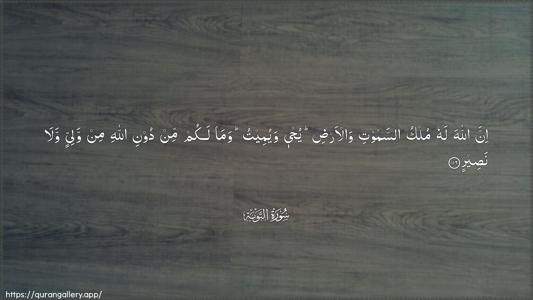 اِنَّ اللّٰهَ لَهٗ مُلْكُ السَّمٰوٰتِ وَالْاَرْضِ ؕ يُحْیٖ وَيُمِيْتُ ؕ وَمَا لَـكُمْ مِّنْ دُوْنِ اللّٰهِ مِنْ وَّلِىٍّ وَّلَا
نَصِيْرٍ
سُوْرَةُ التَّوْبَة
https://qurangallery.app/